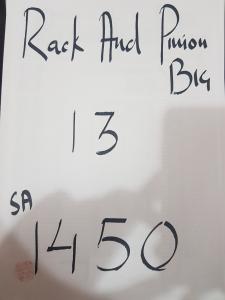 Rack And Pinion
Big
13
SA
1450